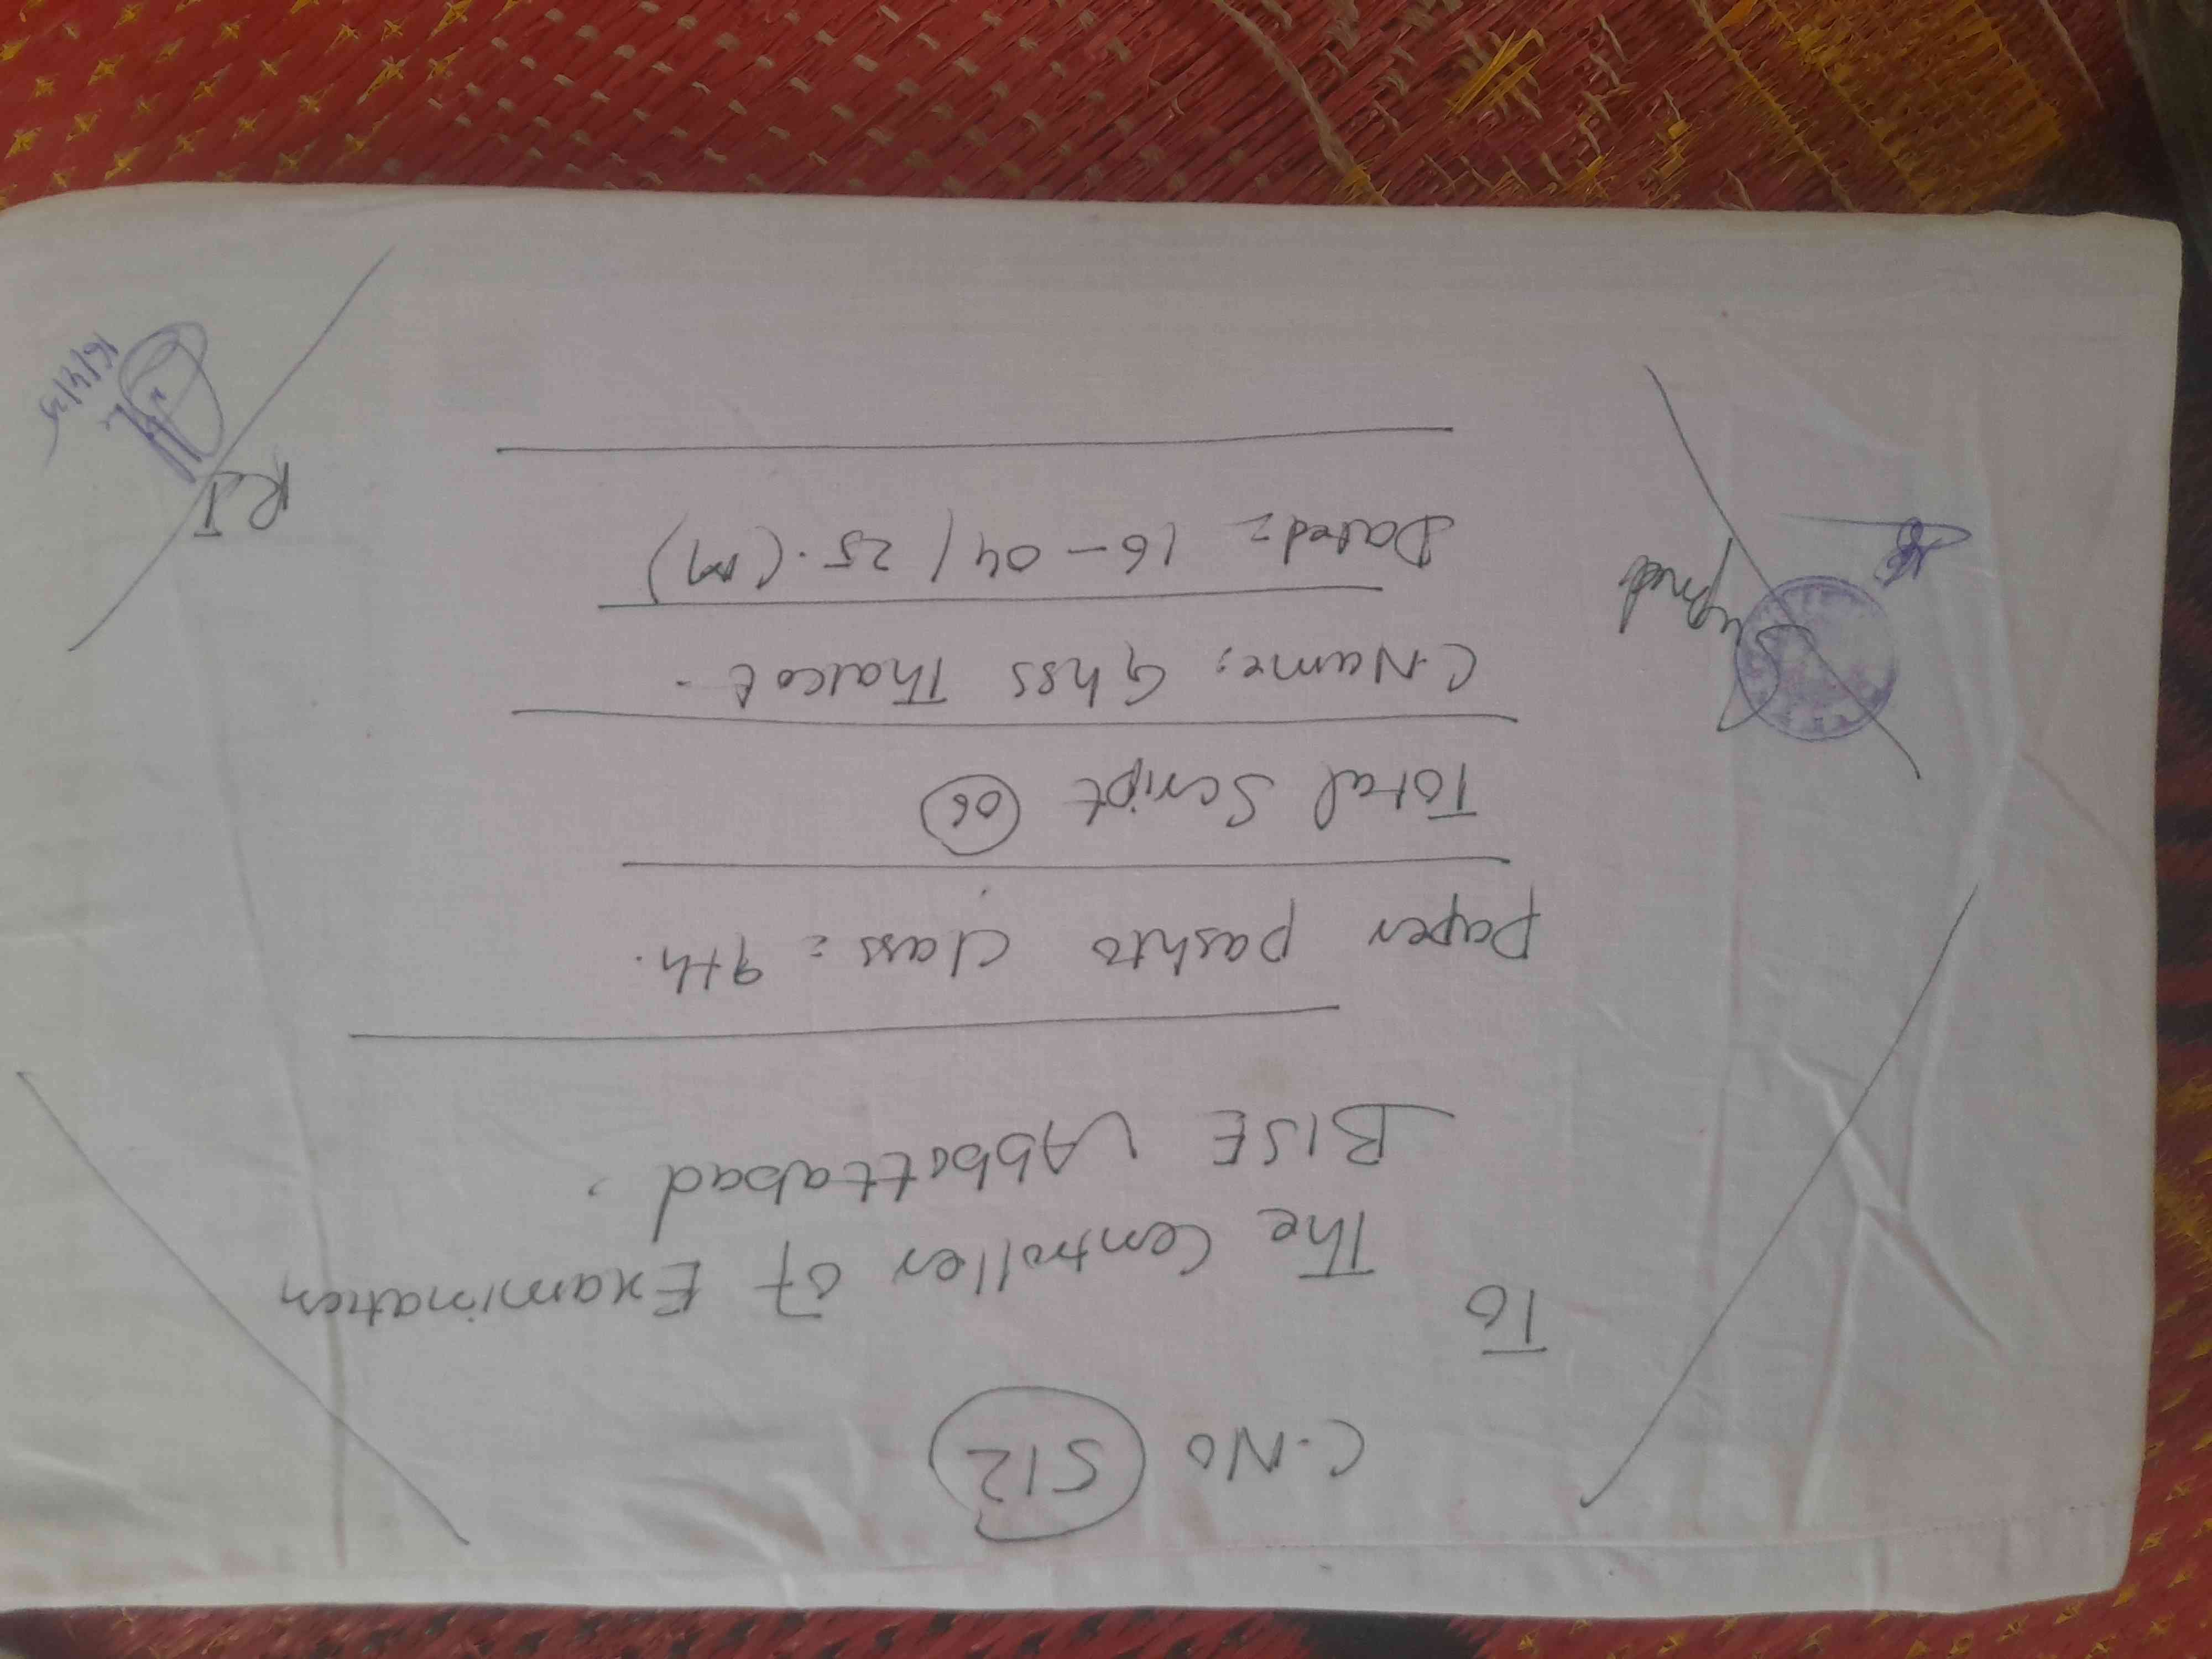 C.No 512
To
The Controller of Examination
BISE Abbottabad.
paper pashto class = 9th.
Total Script 06
C.Name: Ghss Thakot.
Dated = 16-04/25.(M)
Supndt
R.I